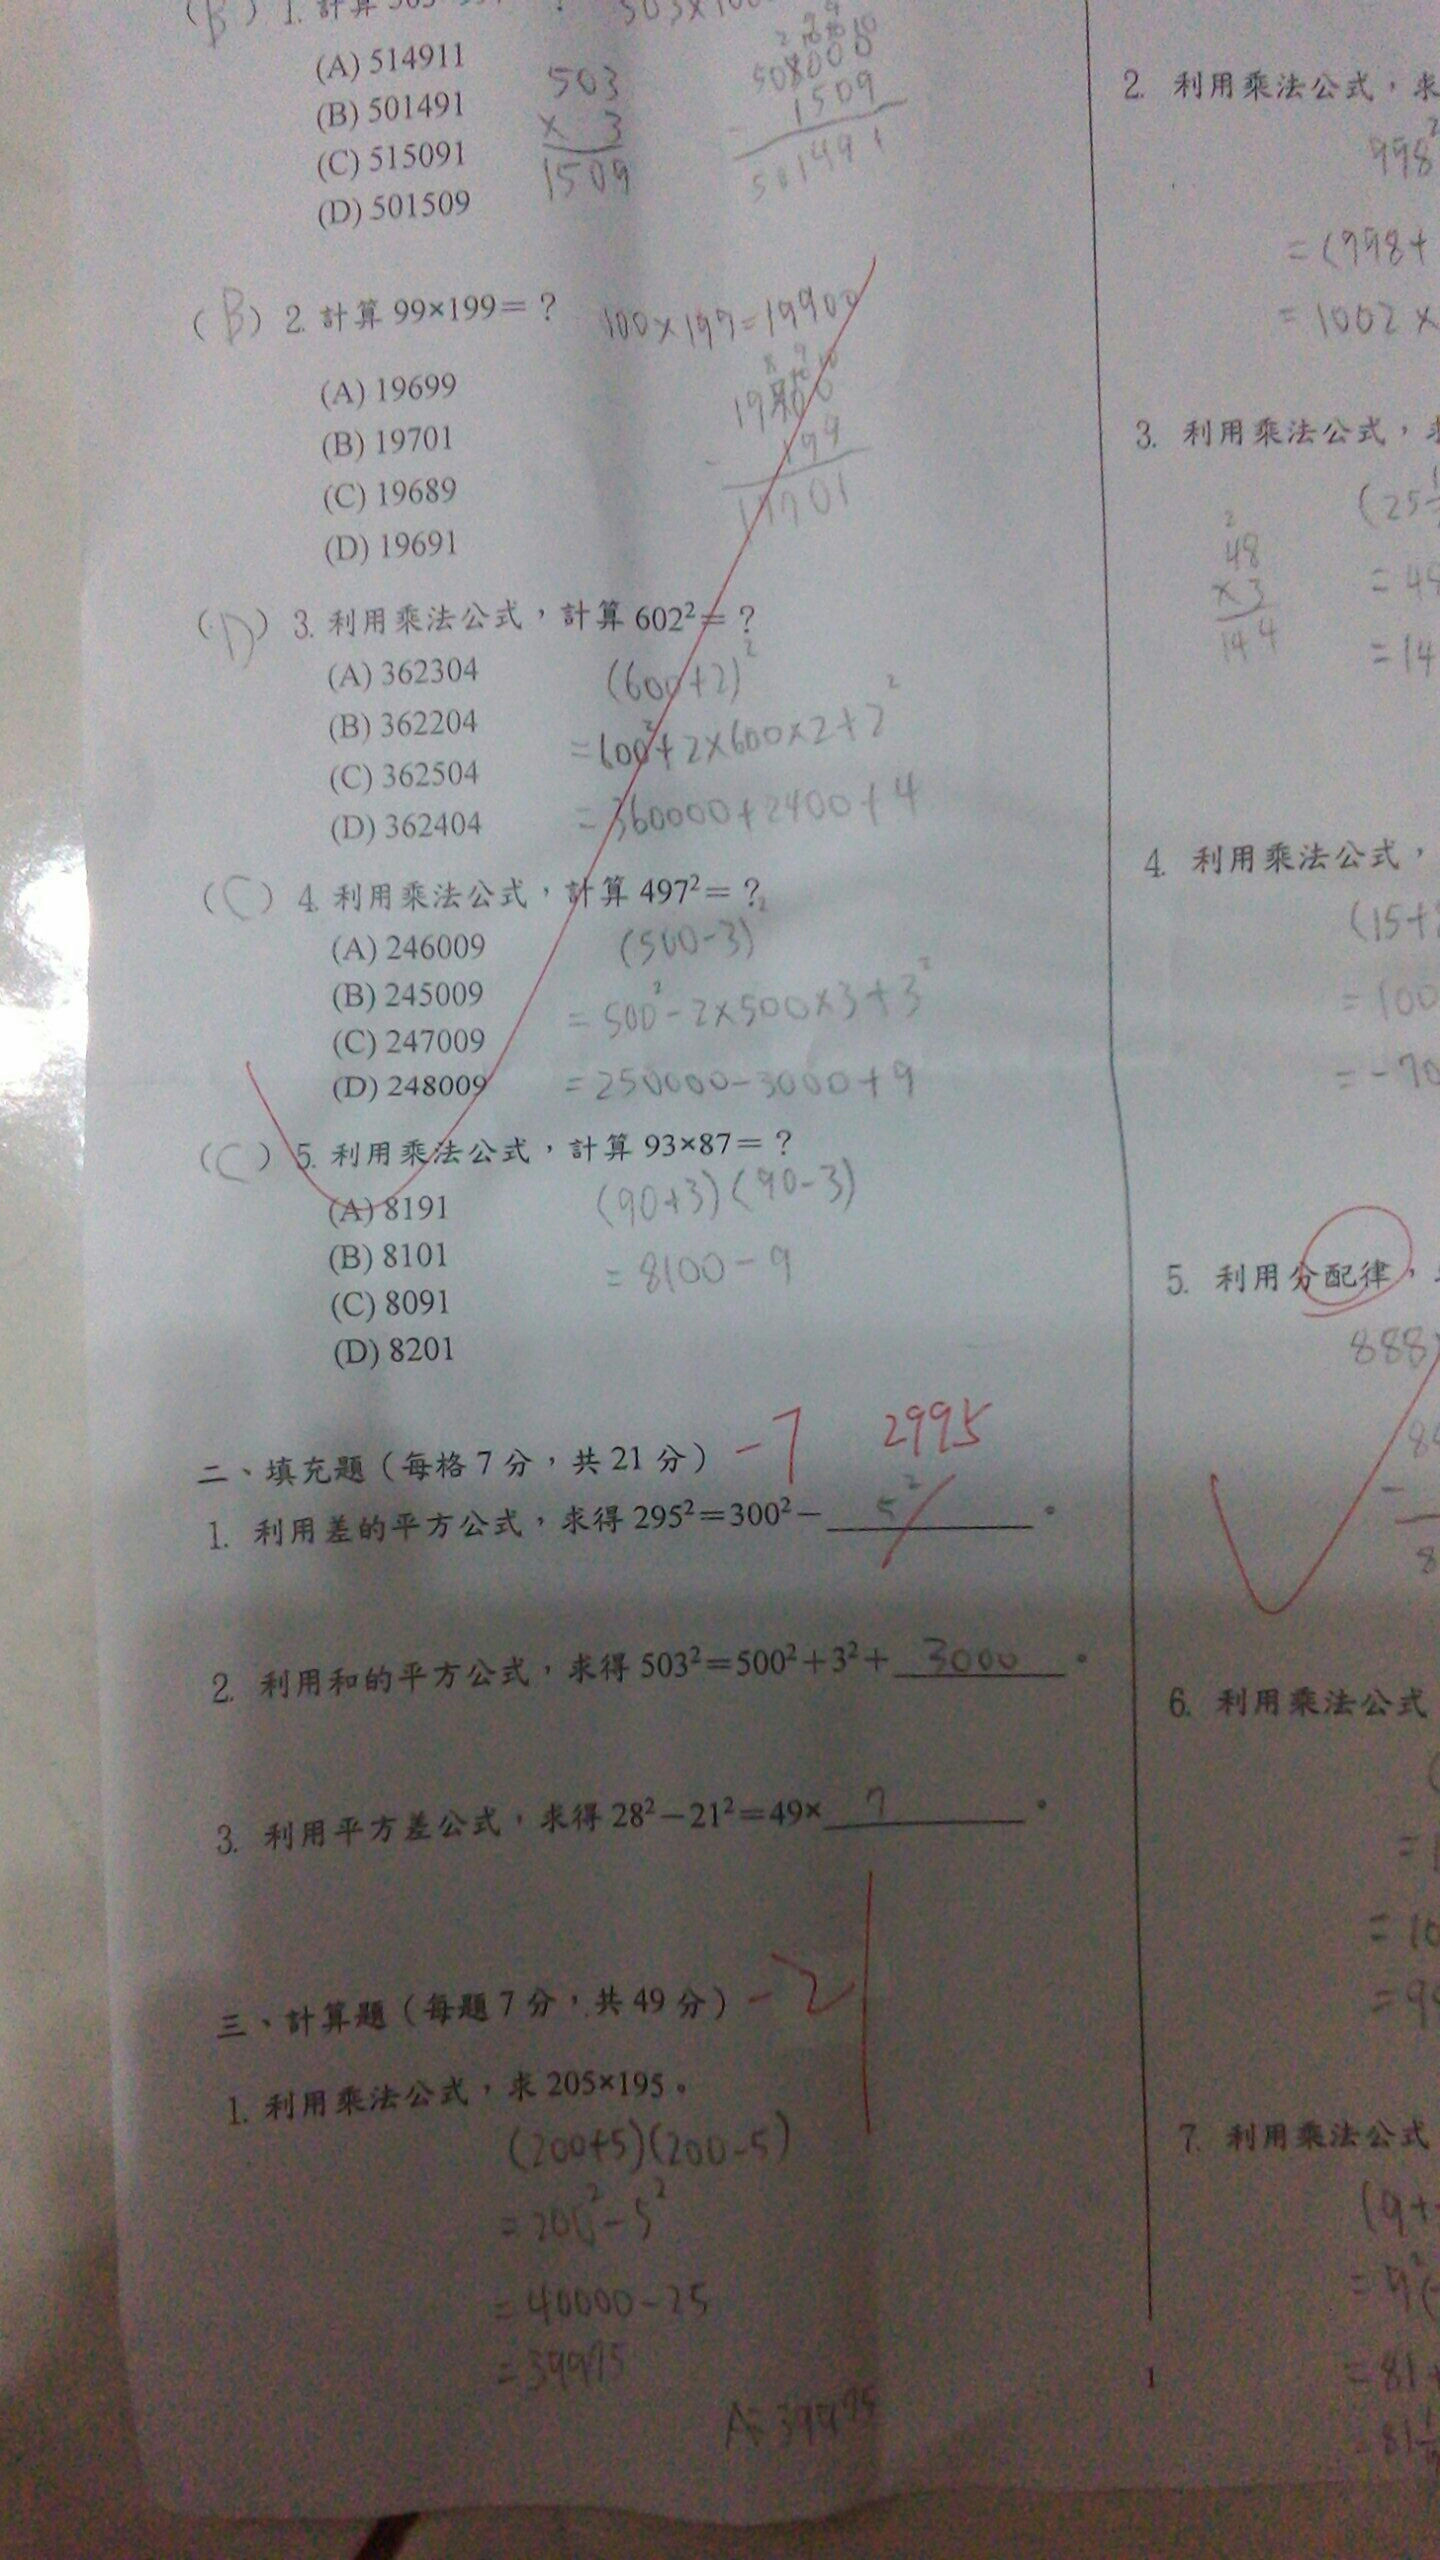 (B) 1. 計算
(A) 514911
(B) 501491
(C) 515091
(D) 501509
503
× 3
1509
508000
- 1509
501491
(B) 2. 計算 99×199=?
100×199=19900
(A) 19699
(B) 19701
(C) 19689
(D) 19691
19900
- 199
19701
(D) 3. 利用乘法公式，計算 602²=?
(A) 362304
(B) 362204
(C) 362504
(D) 362404
(600+2)²
=600²+2×600×2+2²
=360000+2400+4
(C) 4. 利用乘法公式，計算 497²=?
(A) 246009
(B) 245009
(C) 247009
(D) 248009
(500-3)²
=500²-2×500×3+3²
=250000-3000+9
(C) 5. 利用乘法公式，計算 93×87=?
(A) 8191
(B) 8101
(C) 8091
(D) 8201
(90+3)(90-3)
=8100-9
二、填充題（每格 7 分，共 21 分） -7 2995
1. 利用差的平方公式，求得 295²=300²- 5² 。
2. 利用和的平方公式，求得 503²=500²+3²+ 3000 。
3. 利用平方差公式，求得 28²-21²=49× 7 。
三、計算題（每題 7 分，共 49 分） -21
1. 利用乘法公式，求 205×195。
(200+5)(200-5)
=200²-5²
=40000-25
=39975
A: 39975
2. 利用乘法公式，求
998²
=(998+
=1002×
3. 利用乘法公式，
(25
48
×3
144
=14
4. 利用乘法公式，
(15+
=100
=-70
5. 利用分配律，
888×
6. 利用乘法公式
7. 利用乘法公式
(9+
=9²
=81
1